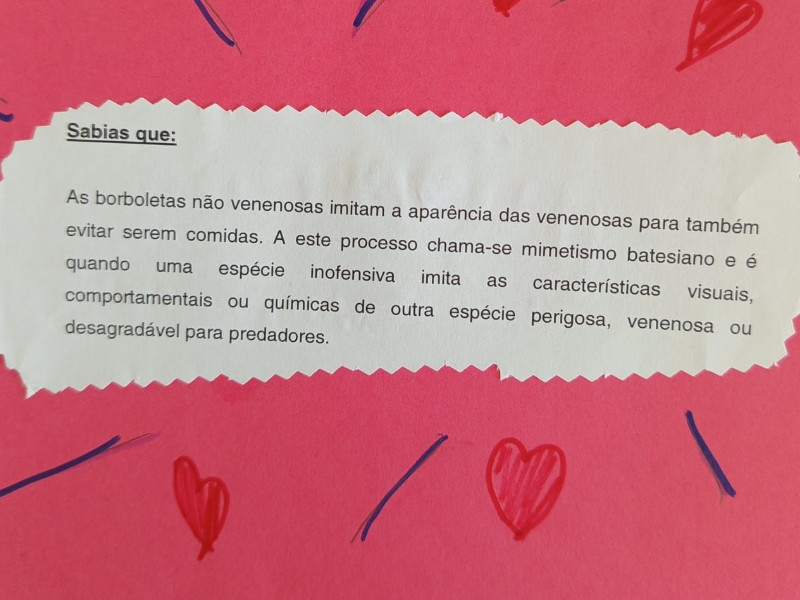 Sabias que:
As borboletas não venenosas imitam a aparência das venenosas para também
evitar serem comidas. A este processo chama-se mimetismo batesiano e é
quando uma espécie inofensiva imita as características visuais,
comportamentais ou químicas de outra espécie perigosa, venenosa ou
desagradável para predadores.